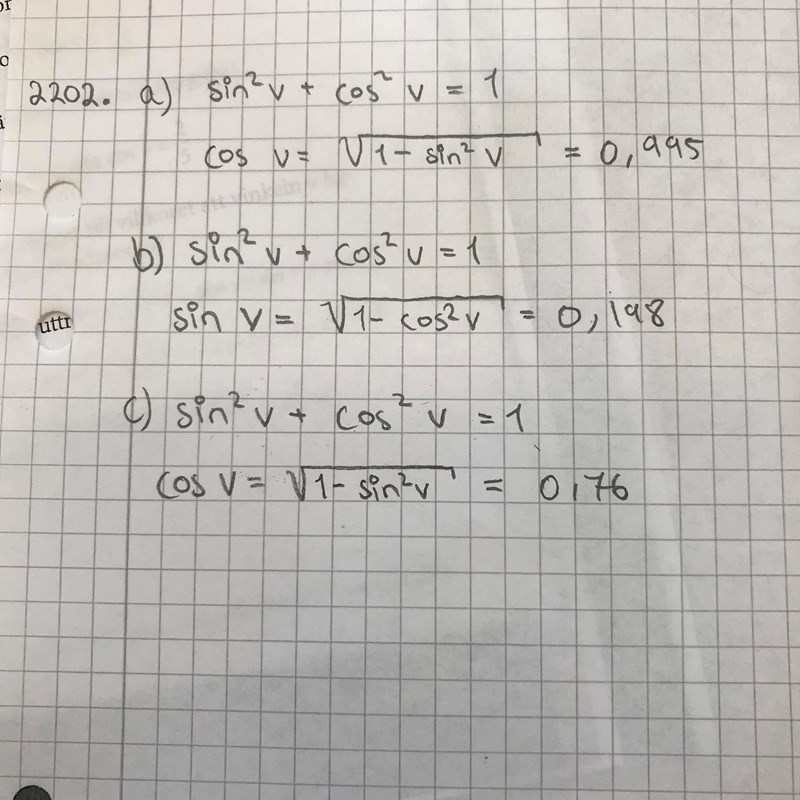 2202. a) sin²v + cos²v = 1
cos v = √(1 - sin²v) = 0,995
b) sin²v + cos²v = 1
sin v = √(1 - cos²v) = 0,198
uttr
c) sin²v + cos²v = 1
cos v = √(1 - sin²v) = 0,76